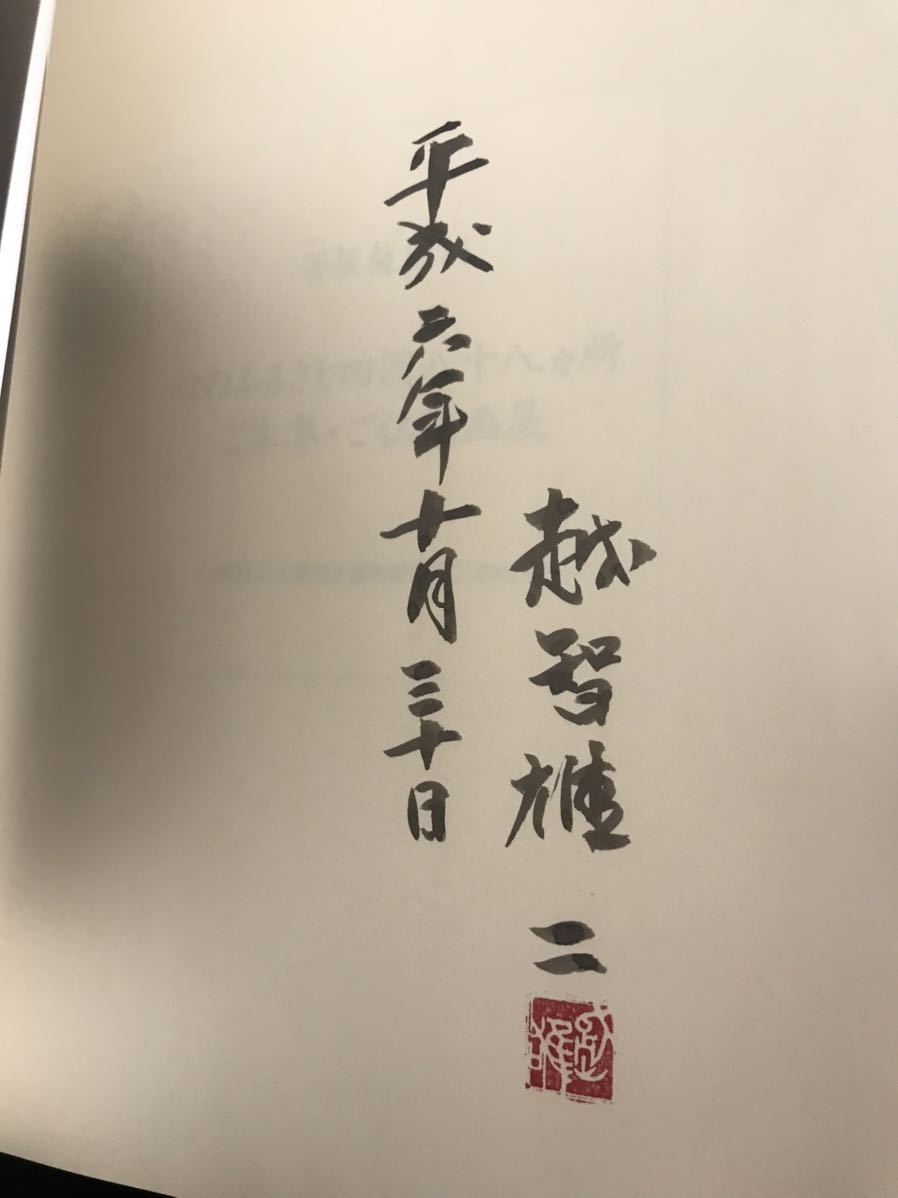 越智雄二
平成六年十月三十日